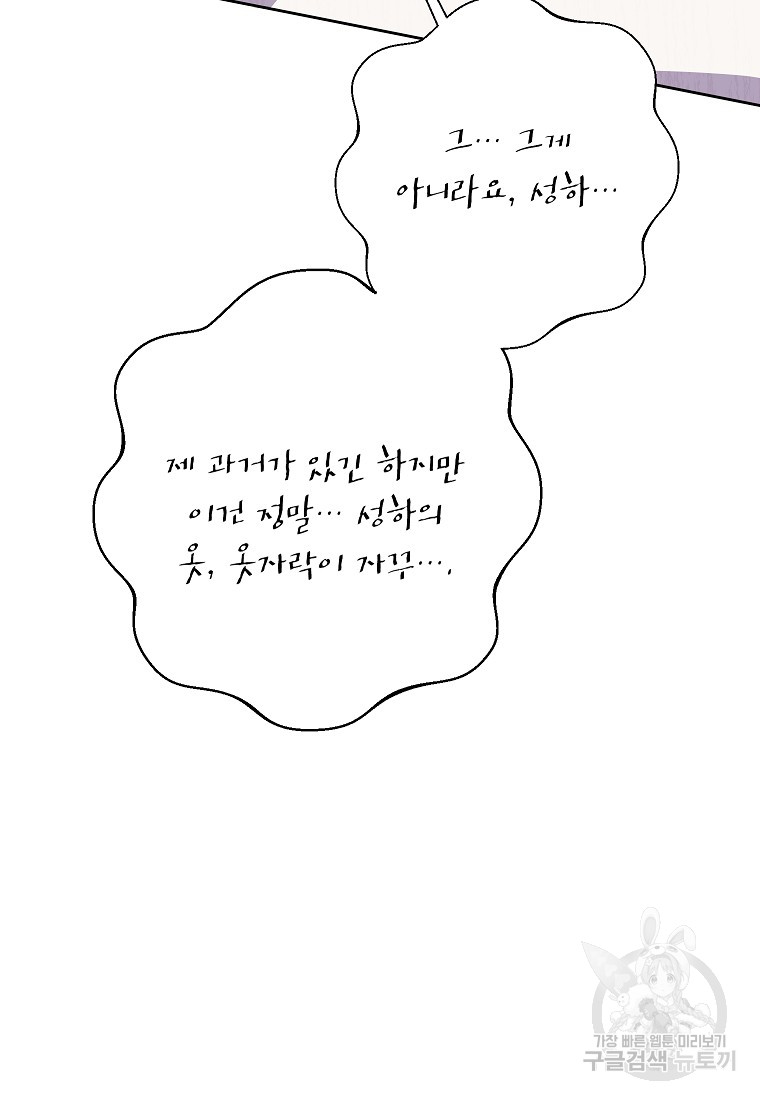 그… 그게
아니라요, 성하…
제 과거가 있긴 하지만
이건 정말… 성하의
옷, 옷자락이 자꾸….
가장 빠른 웹툰 미리보기
구글검색 뉴토끼